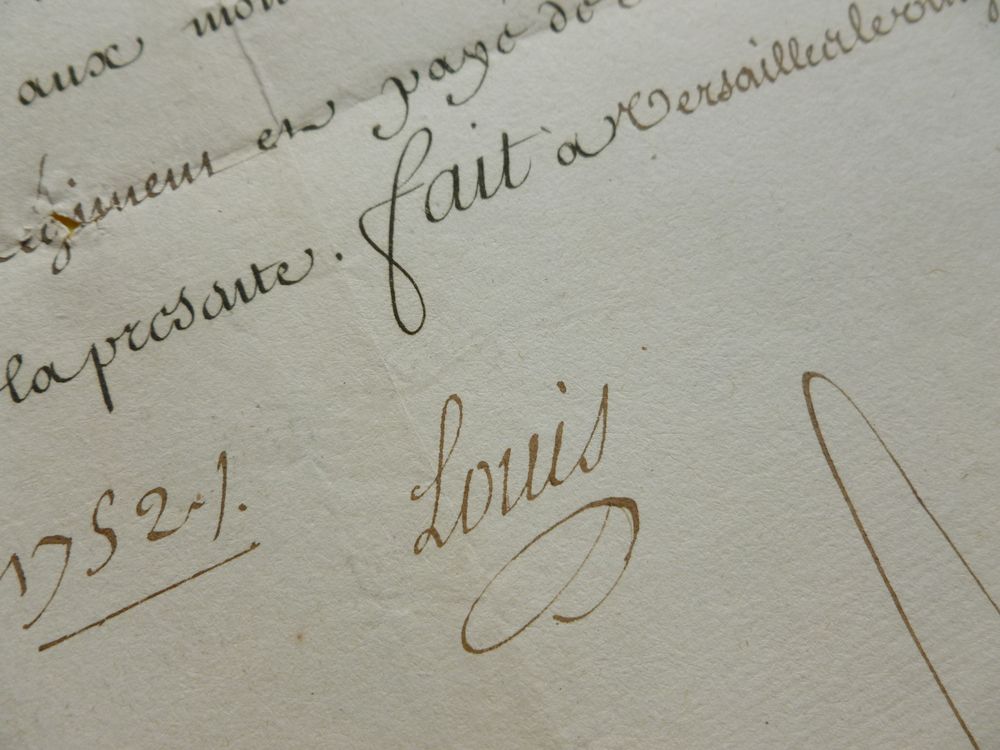 aux
regiment en paye de
la presante. fait à Versailles le
1752 /.
Louis